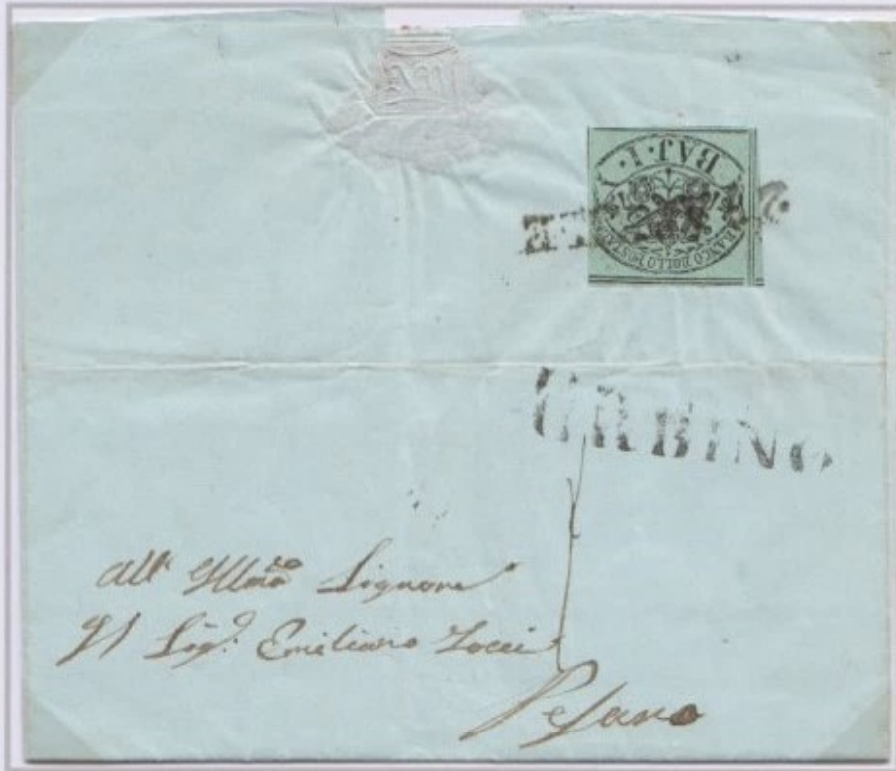 BAJ·1·
FRANCO BOLLO POSTALE
URBINO
All' Illmo Signore
Il Sig.r Emiliano
Pesaro